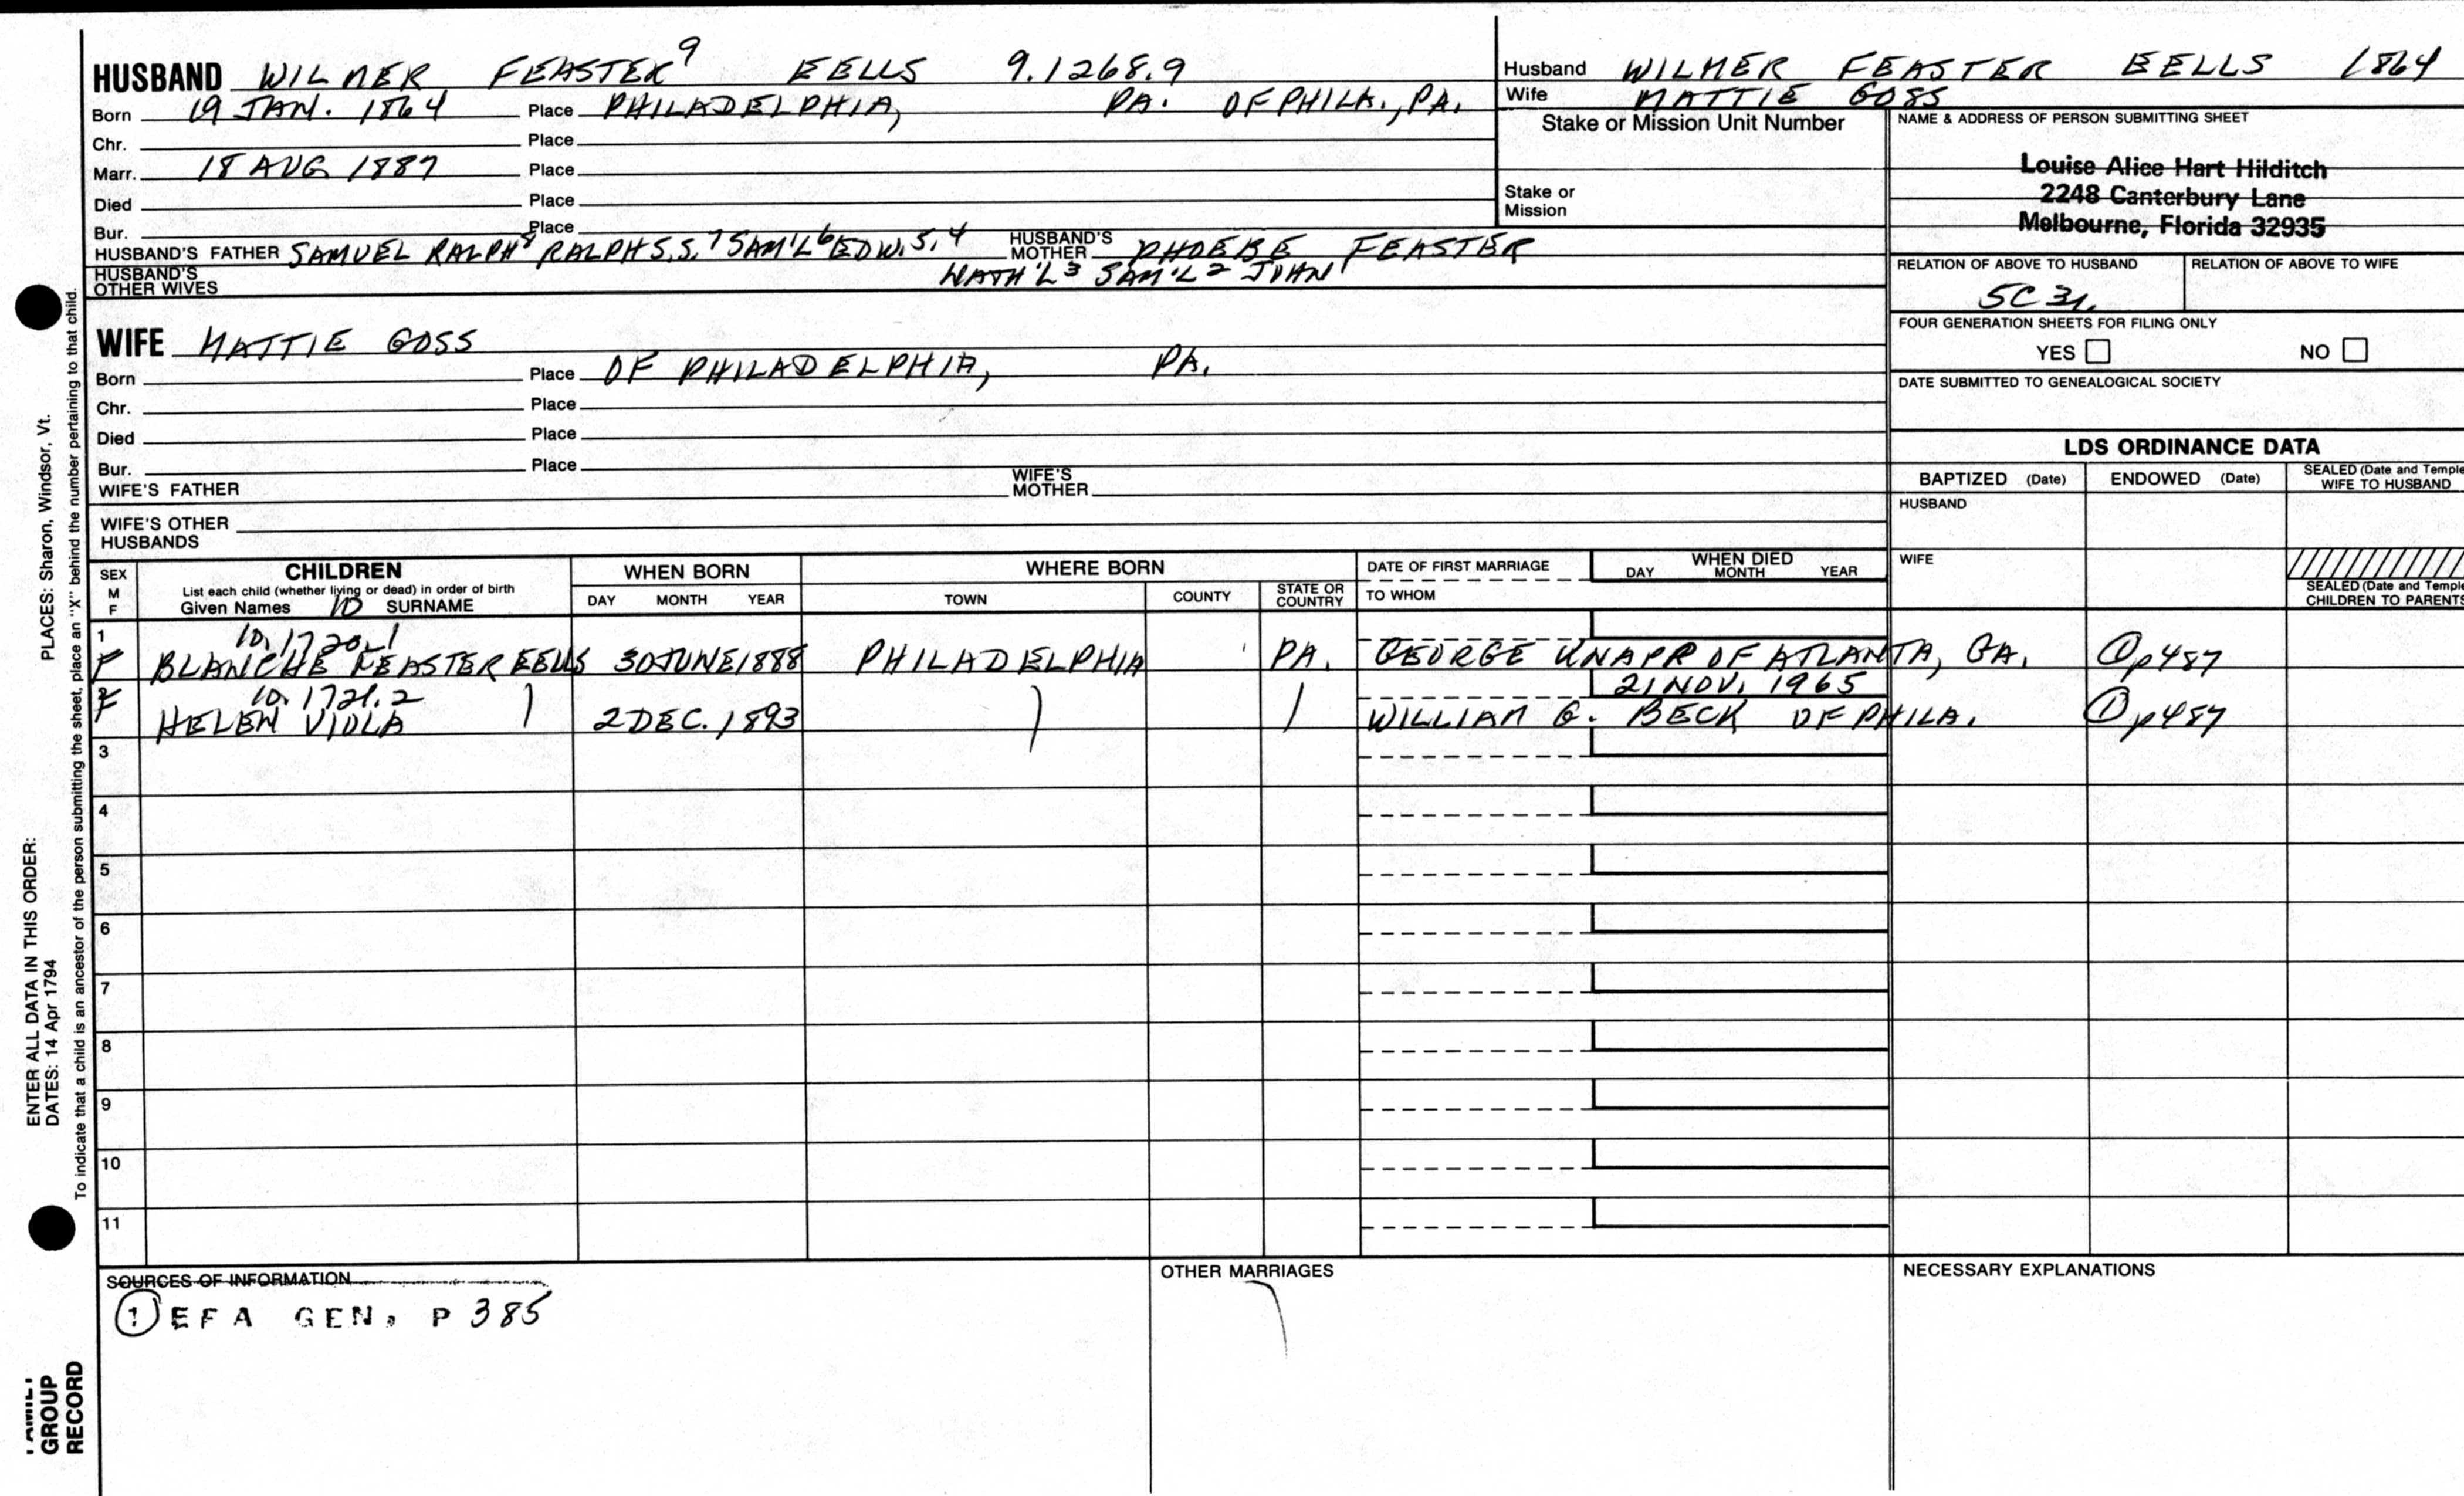 HUSBAND WILMER FEASTER⁹ EELLS 9.1268.9
Born 19 JAN. 1864 Place PHILADELPHIA, PA. OF PHILA., PA.
Chr. Place
Marr. 18 AUG 1887 Place
Died Place
Bur. Place
HUSBAND'S FATHER SAMUEL RALPH⁸ RALPH S.S.⁷ SAM'L⁶ EDW.5,4 HUSBAND'S MOTHER PHOEBE FEASTER
HUSBAND'S OTHER WIVES NATH'L³ SAM'L² JOHN¹
Husband WILMER FEASTER EELLS 1864
Wife MATTIE GOSS
Stake or Mission Unit Number
Stake or
Mission
NAME & ADDRESS OF PERSON SUBMITTING SHEET
Louise Alice Hart Hilditch
2248 Canterbury Lane
Melbourne, Florida 32935
RELATION OF ABOVE TO HUSBAND RELATION OF ABOVE TO WIFE
5C3r.
FOUR GENERATION SHEETS FOR FILING ONLY
YES NO
DATE SUBMITTED TO GENEALOGICAL SOCIETY
WIFE MATTIE GOSS
Born Place OF PHILADELPHIA, PA.
Chr. Place
Died Place
Bur. Place
WIFE'S FATHER WIFE'S MOTHER
WIFE'S OTHER
HUSBANDS
LDS ORDINANCE DATA
BAPTIZED (Date) ENDOWED (Date) SEALED (Date and Temple
WIFE TO HUSBAND
HUSBAND
WIFE
SEALED (Date and Temple
CHILDREN TO PARENTS
SEX
M
F
CHILDREN
List each child (whether living or dead) in order of birth
Given Names 10 SURNAME
WHEN BORN
DAY MONTH YEAR
WHERE BORN
TOWN COUNTY STATE OR COUNTRY
DATE OF FIRST MARRIAGE
TO WHOM
WHEN DIED
DAY MONTH YEAR
1 10.1720.1
F BLANCHE FEASTER EELLS 30 JUNE 1888 PHILADELPHIA PA. GEORGE KNAPP OF ATLANTA, GA. ① p487
10.1721.2 21 NOV. 1965
F HELEN VIOLA 2 DEC. 1893 WILLIAM G. BECK OF PHILA. ① p487
3
4
5
6
7
8
9
10
11
SOURCES OF INFORMATION
① EFA GEN. P 385
OTHER MARRIAGES
NECESSARY EXPLANATIONS
PLACES: Sharon, Windsor, Vt.
ENTER ALL DATA IN THIS ORDER:
DATES: 14 Apr 1794
To indicate that a child is an ancestor of the person submitting the sheet, place an "X" behind the number pertaining to that child.
FAMILY
GROUP
RECORD